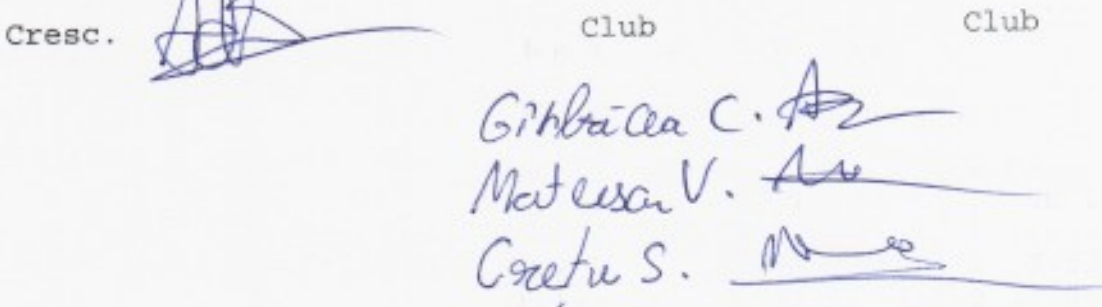 Cresc. Club Club
Gîrbăcea C.
Mateesan V.
Cretu S.